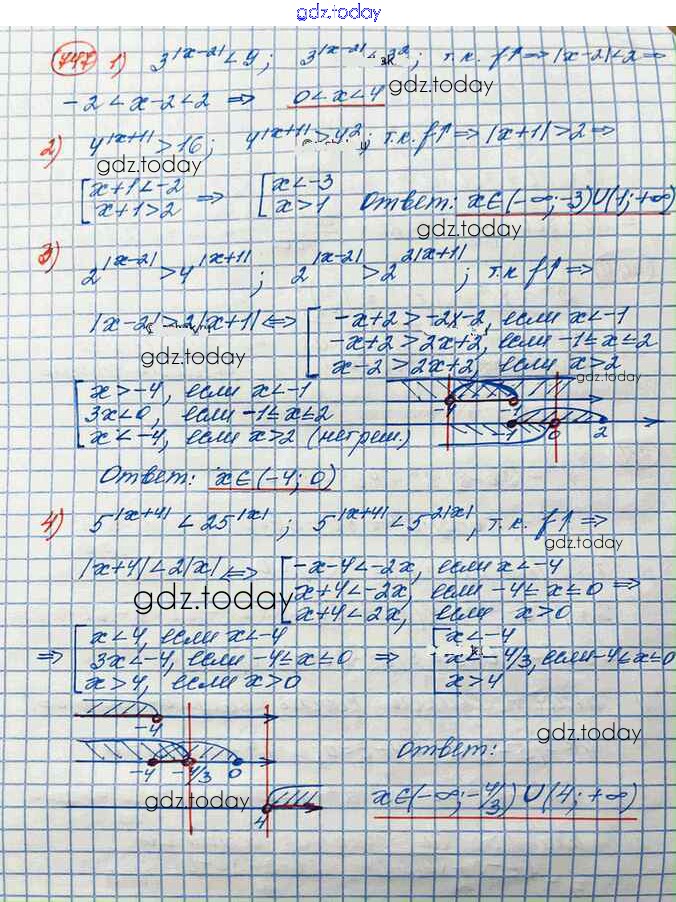 gdz.today
747 1) 3^|x-2| < 9; 3^|x-2| < 3²; т.к. f↑ ⇒ |x-2| < 2 ⇒
gdz.today
-2 < x-2 < 2 ⇒ 0 < x < 4
2) 4^|x+1| > 16; 4^|x+1| > 4²; т.к. f↑ ⇒ |x+1| > 2 ⇒
gdz.today
[ x+1 < -2 ⇒ [ x < -3
x+1 > 2 x > 1 Ответ: x∈(-∞; -3)∪(1; +∞)
gdz.today
3) 2^|x-2| > 4^|x+1|; 2^|x-2| > 2^2|x+1|; т.к. f↑ ⇒
|x-2| > 2|x+1| ⇔ [ -x+2 > -2x-2, если x < -1
-x+2 > 2x+2, если -1 ≤ x ≤ 2
gdz.today
x-2 > 2x+2, если x > 2
gdz.today
[ x > -4, если x < -1
3x < 0, если -1 ≤ x ≤ 2
x < -4, если x > 2 (нет реш.)
-4 -1
-1 0 2
Ответ: x∈(-4; 0)
4) 5^|x+4| < 25^|x|; 5^|x+4| < 5^2|x|, т.к. f↑ ⇒
gdz.today
|x+4| < 2|x| ⇔ [ -x-4 < -2x, если x < -4
x+4 < -2x, если -4 ≤ x ≤ 0 ⇒
gdz.today
x+4 < 2x, если x > 0
⇒ [ x < 4, если x < -4 [ x < -4
3x < -4, если -4 ≤ x ≤ 0 ⇒ x < -4/3, если -4 ≤ x ≤ 0
x > 4, если x > 0 x > 4
-4
gdz.today
Ответ:
-4 -4/3 0
gdz.today
x∈(-∞; -4/3)∪(4; +∞)
4